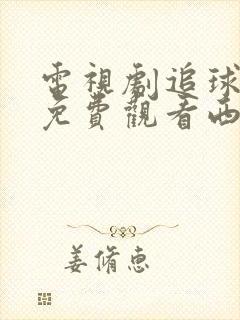 電視劇追球
免費觀看西
姜脩惠